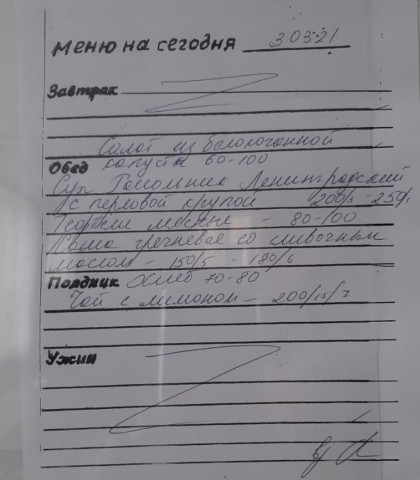 Меню на сегодня 3.03.21
Завтрак
Салат из белокочанной
Обед капусты 60-100
Суп Рассольник Ленинградский
с перловой крупой 200/5-250/
мясные - 80-100
Каша гречневая со сливочным
маслом - 150/5 - 180/6
Полдник Хлеб 70-80
Чай с лимоном - 200/15/7
Ужин